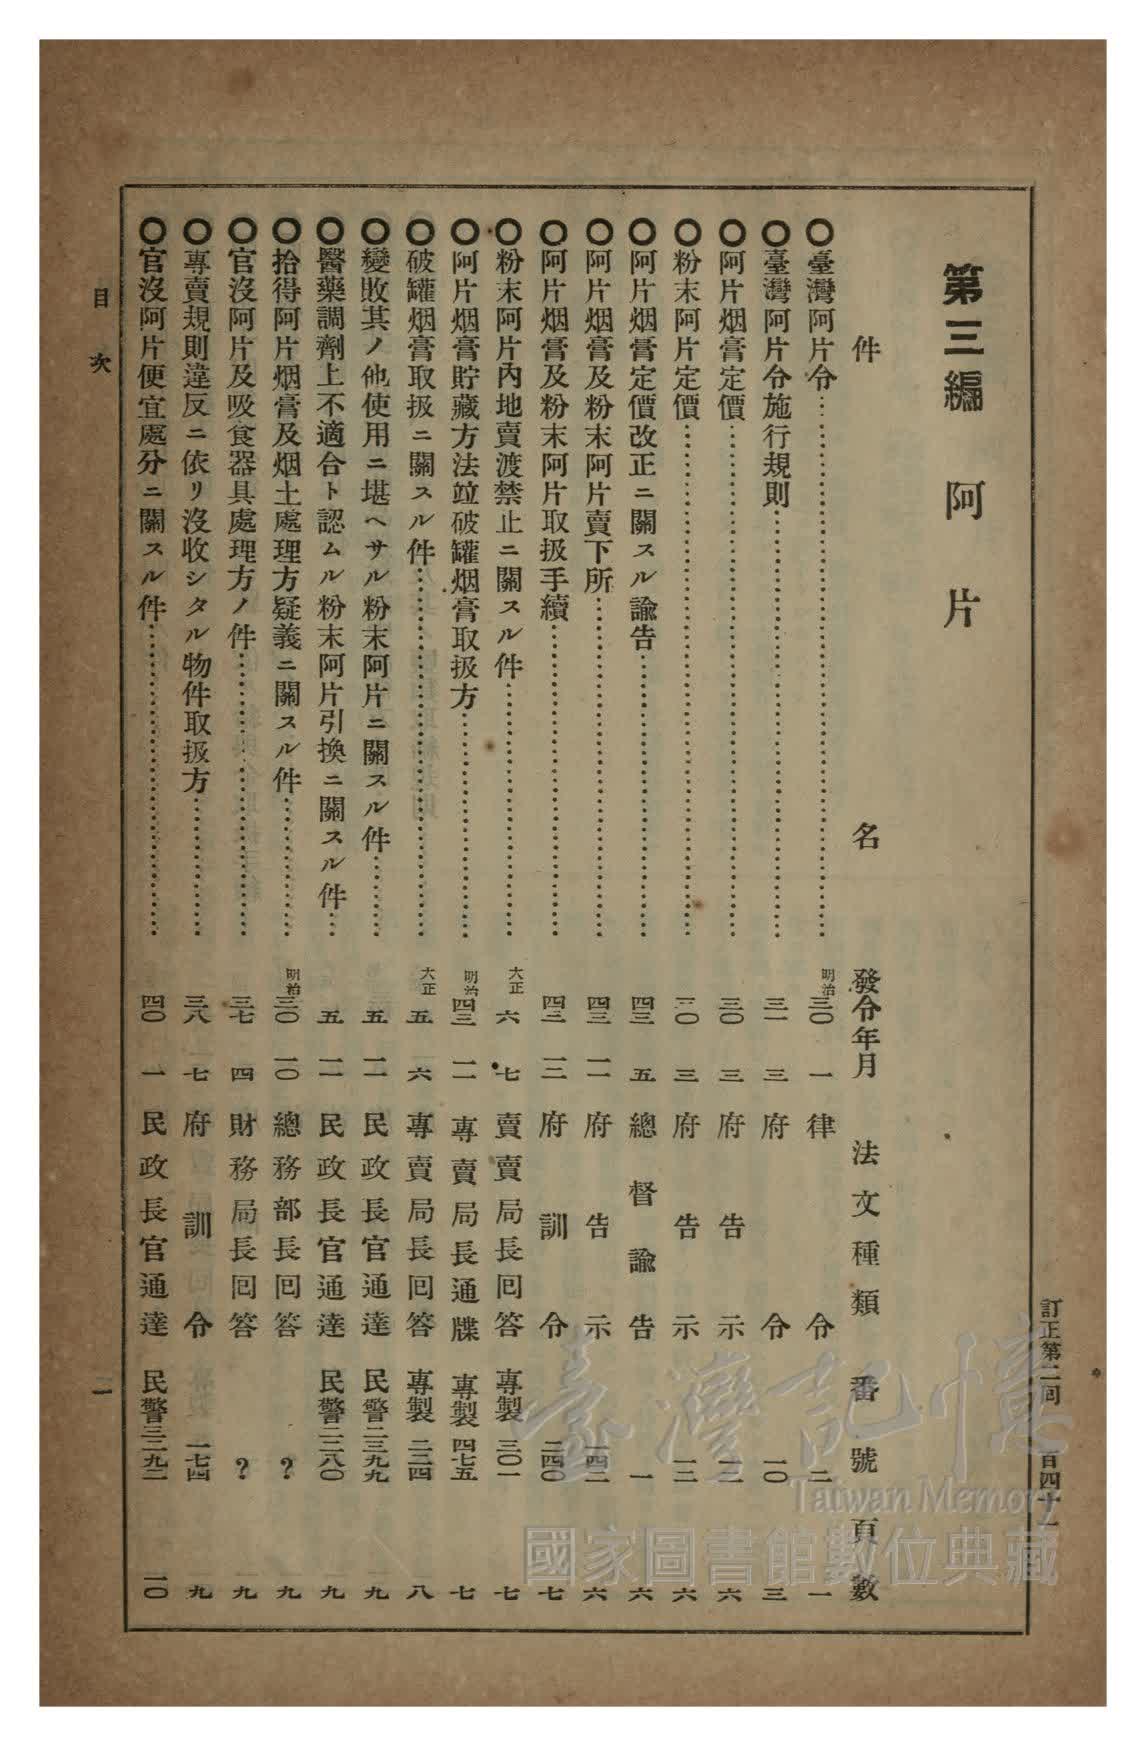 訂正第二回 百四十一
第三編 阿片
件名 發令年月 法文種類 番號 頁數
〇臺灣阿片令 明治三〇 一 律令 二 一
〇臺灣阿片令施行規則 三一 三 府令 一〇 三
〇阿片烟膏定價 三〇 三 府告示 一一 六
〇粉末阿片定價 三〇 三 府告示 一二 六
〇阿片烟膏定價改正ニ關スル諭告 四三 五 總督諭告 一 六
〇阿片烟膏及粉末阿片賣下所 四三 一一 府告示 一四二 六
〇阿片烟膏及粉末阿片取扱手續 四三 一二 府訓令 二四〇 七
〇粉末阿片內地賣渡禁止ニ關スル件 大正六 七 賣賣局長囘答 專製三〇一 七
〇阿片烟膏貯藏方法竝破罐烟膏取扱方 明治四三 一一 專賣局長通牒 專製四七五 七
〇破罐烟膏取扱ニ關スル件 大正五 六 專賣局長囘答 專製二三四 八
〇變敗其ノ他使用ニ堪ヘサル粉末阿片ニ關スル件 五 一一 民政長官通達 民警二三九九 九
〇醫藥調劑上不適合ト認ムル粉末阿片引換ニ關スル件 五 一一 民政長官通達 民警二二八〇 九
〇拾得阿片烟膏及烟土處理方疑義ニ關スル件 明治三〇 一〇 總務部長囘答 ? 九
〇官沒阿片及吸食器具處理方ノ件 三七 四 財務局長囘答 ? 九
〇專賣規則違反ニ依リ沒收シタル物件取扱方 三八 七 府訓令 一七四 九
〇官沒阿片便宜處分ニ關スル件 四〇 一 民政長官通達 民警三二九二 一〇
目次
一
臺灣記憶
Taiwan Memory
國家圖書館數位典藏